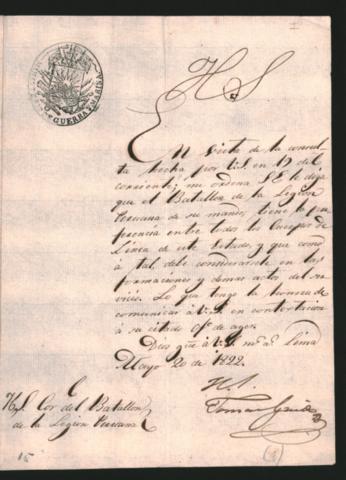 GUERRA
H. S.
En vista de la consul-
ta hecha por V.S. en 19 del
corriente; me ordena S.E. le diga
que el Batallon de la Legion
Peruana de su mando, tiene la pre-
ferencia entre todos los Cuerpos de
Linea de este Estado, y que como
á tal, debe considerarse en las
formaciones y demas actos del ser-
vicio. Lo que tengo la honra de
comunicar á V.S. en contestacion
á su citado of.º de ayer.
Dios gue á V.S. m.s a.s Lima
Mayo 20 de 1822.
H. S.
Tomas Guido
H. S. Cor. del Batallon
de la Legion Peruana
15